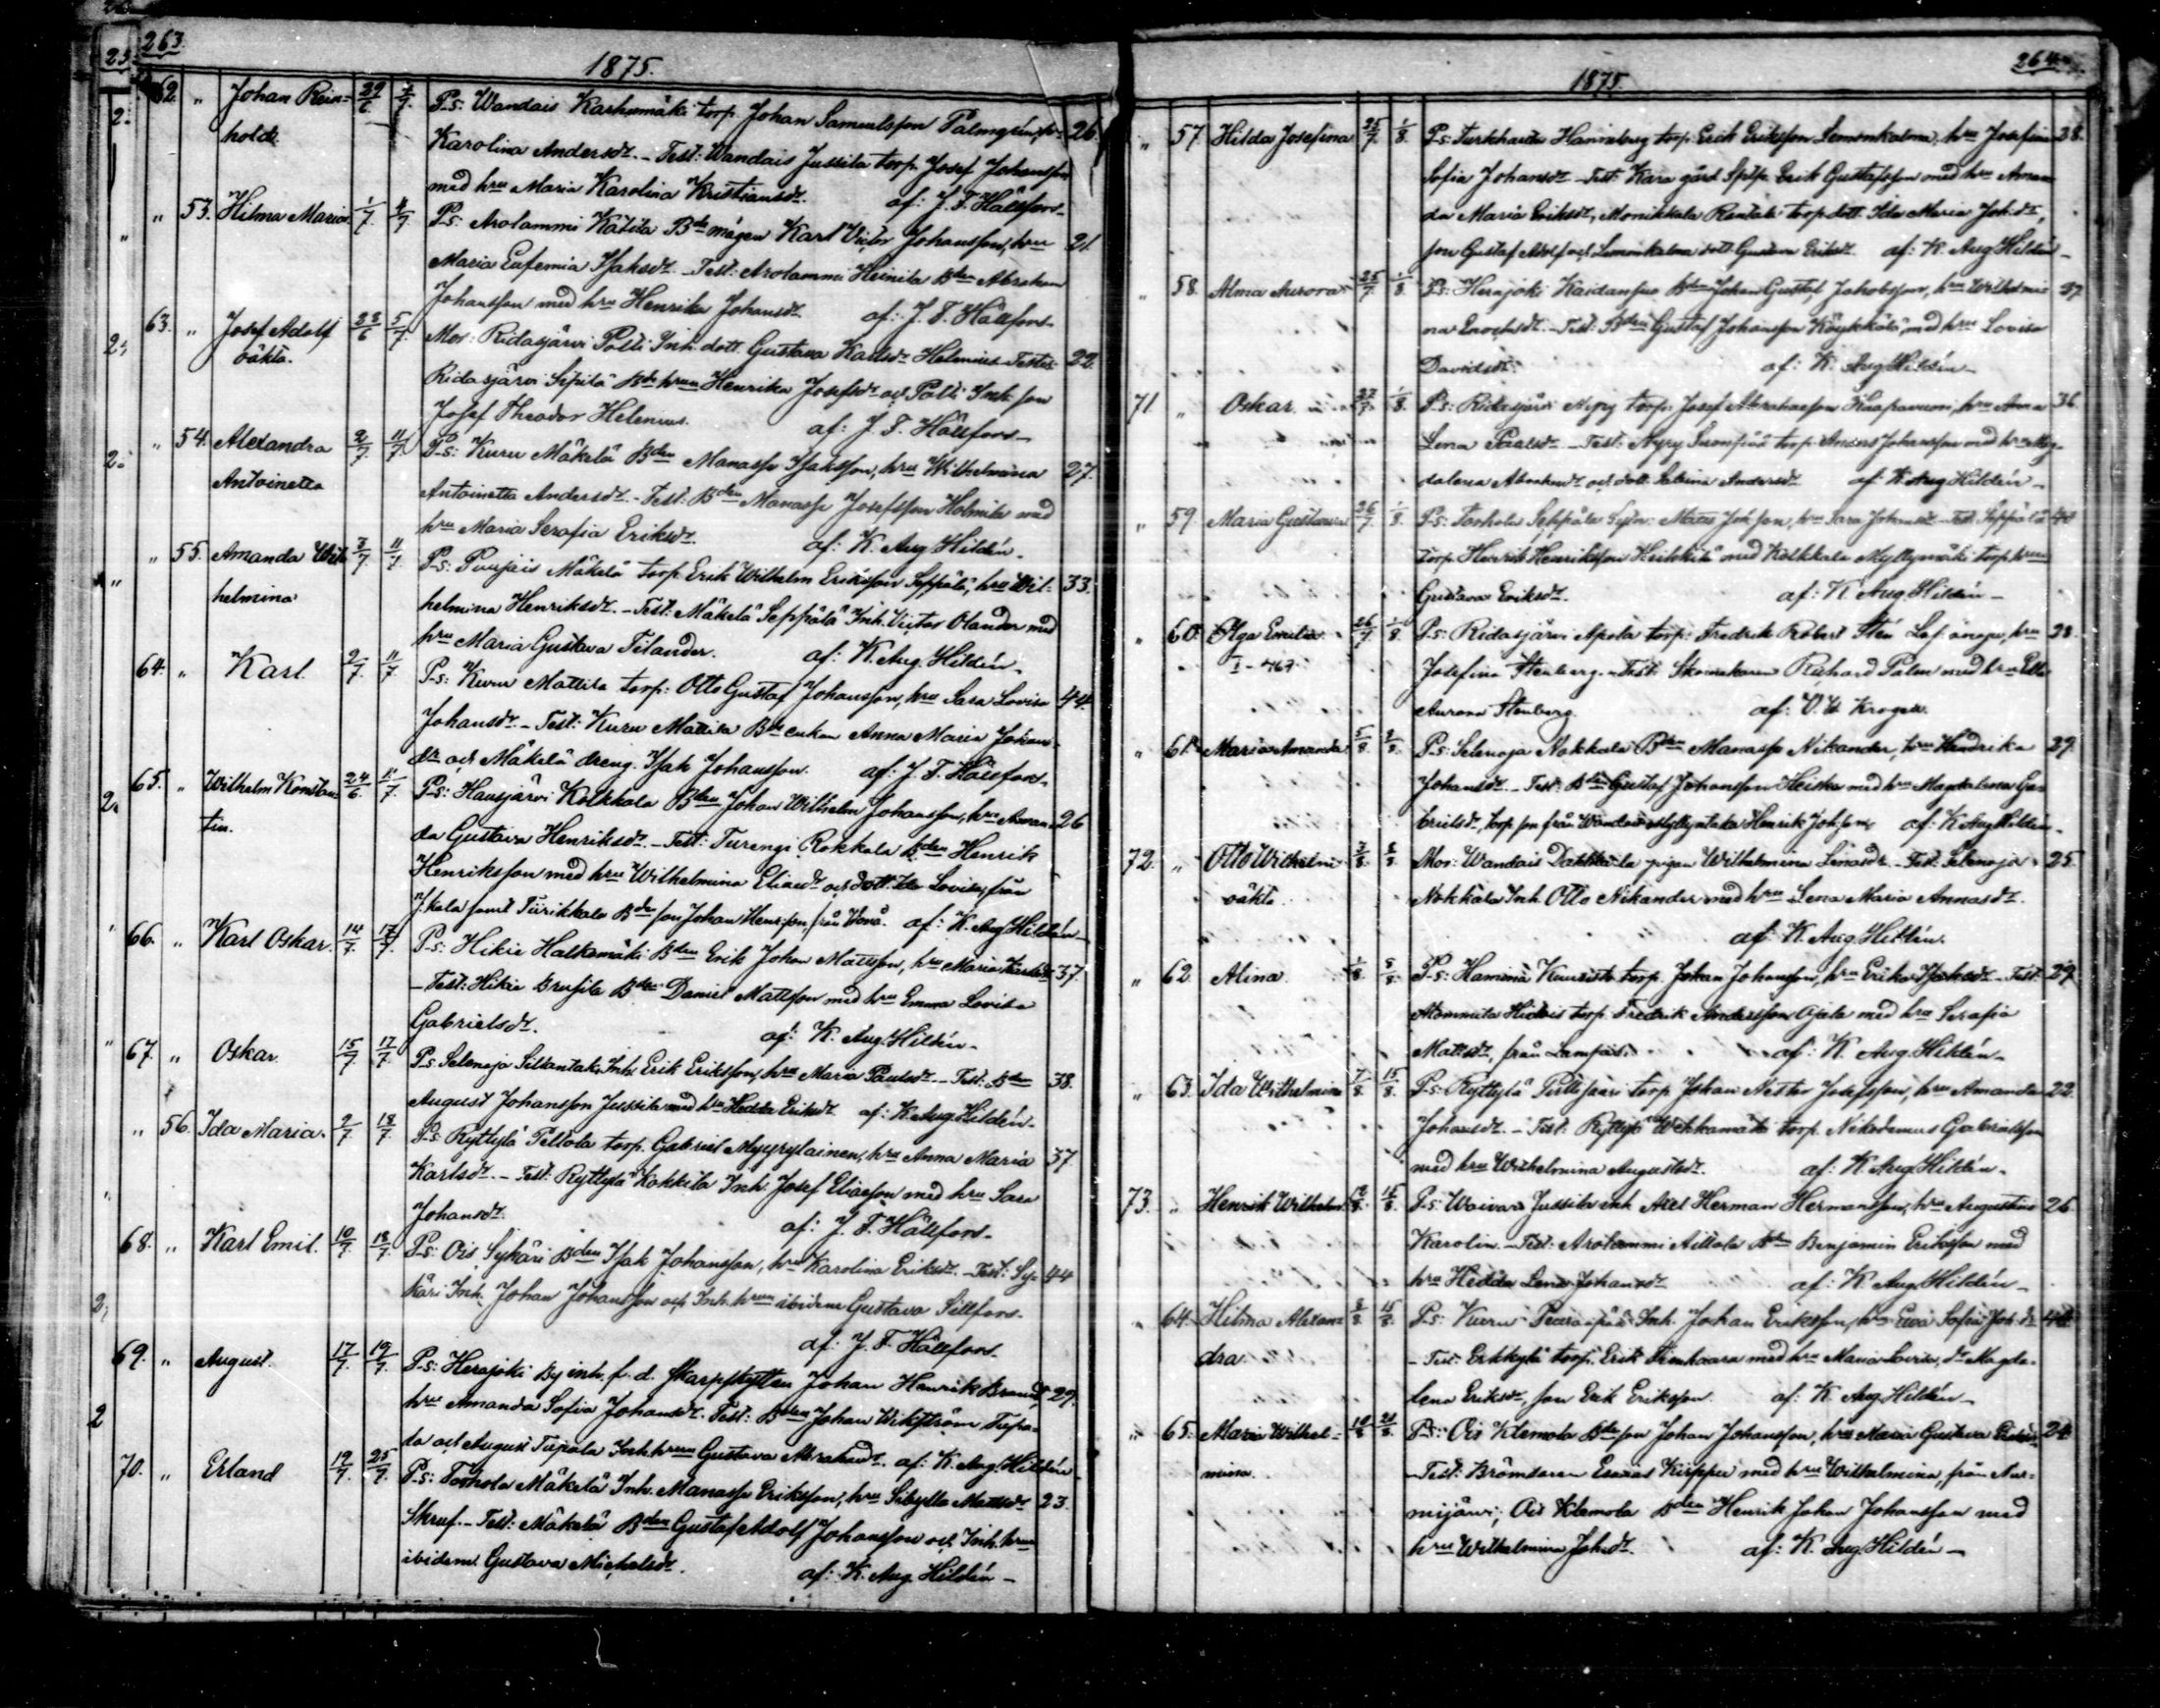 263.
1875.
62. " Johan Rein= 29/6 4/7. P-s: Wandais Karhumäki torp. Johan Samuelsson Palmgrén, h= 26.
hold. Karolina Andersdr. - Test: Wandais Jussila torp. Josef Johansson
med hru Maria Karolina Kristiansdr. af: J. F. Hällfors-
" 53. Hilma Maria 1/7 4/7. P-s: Arolammi Kätilä Bde mågen Karl Victor Johansson, hru 21.
Maria Eufemia Isaksdr. - Test: Arolammi Heinilä Bden Abraham
Johansson med hru Henrika Johansdr. af: J. F. Hällfors-
63. " Josef Adolf 23/6 5/7. Mor: Ridasjärvi Polli Inh. dott. Gustava Karlsdr Helenius. Testes: 22.
oäkta. Ridasjärvi Seppilä Bde hrun Henrika Josefsdr och Polli Inh. son
Josef Theodor Helenius. af: J. F. Hällfors-
" 54. Alexandra 2/7. 11/7. P-s: Kuru Mäkelä Bden Manasse Isaksson, hru Wilhelmina 27.
Antoinetta Antoinetta Andersdr. - Test: Bden Manasse Josefsson Holmila med
hru Maria Serafia Eriksdr. af: K. Aug. Hildén.
" 55. Amanda Wil= 3/7. 11/7. P-s: Puujais Mäkelä torp. Erik Wilhelm Eriksson Seppälä, hru Wil- 33.
helmina helmina Henriksdr. - Test: Mäkelä Seppälä Inh. Victor Olander med
hru Maria Gustava Tilander. af: K. Aug. Hildén.
64. " Karl. 2/7. 11/7. P-s: Kuru Mattila torp: Otto Gustaf Johansson, hru Sara Lovisa 44.
Johansdr. - Test: Kuru Mattila Bde enkan Anna Maria Johans-
dr och Mäkelä dreng. Isak Johansson. af: J. F. Hällfors-
65. " Wilhelm Konstan= 24/6. 11/7. P-s: Hausjärvi Kolkkala Bden Johan Wilhelm Johansson, hru Aman- 26
tin. da Gustava Henriksdr. - Test: Turengi Rokkala Bden Henrik
Henriksson med hru Wilhelmina Eliaedr och dott. Ida Lovisa, från
J:kala samt Tiirikkala Bde son Johan Henrsson från Wånå. af: K. Aug. Hildén
66. " Karl Oskar. 14/7. 17/7. P-s: Hikie Halkomäki Bden Erik Johan Mattsson, hru Maria Karlsdr 37.
- Test: Hikie Brusila Bden Daniel Mattsson med hru Emma Lovisa
Gabrielsdr. af: K. Aug. Hildén-
67. " Oskar. 15/7. 17/7. P-s. Selenoja Siltantaka Inh. Erik Eriksson, hru Maria Paulsdr. - Test: Bden 38.
August Johansson Jussila med hru Hedda Eriksdr af: K. Aug. Hildén-
" 56. Ida Maria. 2/7. 18/7. P-s: Ryttylä Peltola torp. Gabriel Myyryläinen, hru Anna Maria 37
Karlsdr. - Test: Ryttylä Kokkila Inh. Josef Eliaeson med hru Sara
Johansdr. af: J. F. Hällfors-
68. " Karl Emil. 10/7. 18/7. P-s: Ois Sykäri Bden Isak Johansson, hru Karolina Eriksdr. - Test: Sy- 44
käri Inh. Johan Johansson och Inh. hrun ibidem Gustava Sillfors-
af: J. F. Hällfors-
69. " August. 17/7. 19/7. P-s: Herajoki By inh. f. d. skarpskytten Johan Henrik Brand, 29.
hru Amanda Sofia Johansdr. Test: Bden Johan Wikström Tupa-
la och August Tupala Inh. hrun Gustava Abrahsdr. af: K. Aug. Hildén
70. " Erland 19/7. 25/7. P-s: Torhola Mäkelä Inh. Manasse Eriksson, hru Sibylla Mattsdr 23.
Skruf. - Test: Mäkelä Bden Gustaf Adolf Johansson och Inh. hrun
ibidem Gustava Michelsdr. af: K. Aug. Hildén -
264
1875.
" 57. Hilda Josefina 25/7. 1/8. P-s: Turkhauta torp. Erik Eriksson Lemonkalma, hru Josefina 28.
Sofia Johansdr - Test: Kara gård Erik Gustafsson med hru Aman-
da Maria Eriksdr, Monikkala Rantala torp. dott. Ida Maria Joh.dr,
son Gustaf Adolf och Lemonkalma dott Gustava Eriksdr. af: K. Aug Hildén-
" 58. Alma Aurora 25/7. 1/8. P-s: Herajoki Kaidansuo Bden Johan Gustaf Jakobsson, hru Wilhelmi- 37.
na Enochsdr. - Test: Bden Gustaf Johansson Köykkälä med hru Lovisa
Davidsdr. af: K. Aug Hildén-
71. " Oskar. 27/7. 1/8. P-s: Ridasjärvi Nyry torp. Josef Abrahamsson Haapavuori, hru Anna 36.
Lena Paulsdr. - Test: Nyry Suonpää torp. Anders Johansson med hru Mag-
dalena Abrahsdr och dott. Andersdr. af: K. Aug Hildén-
" 59. Maria Gustava 26/7. 1/8. P-s: Torhola Seppälä Matts Johsson, hru Sara Johansdr - Test. Seppälä 40
torp. Henrik Henriksson med Kolkkala Myllymäki torp. hrun
Gustava Eriksdr. af: K. Aug. Hildén-
" 60. Olga Emilia 26/7. 1/8. P-s: Ridasjärvi Apola torp. Fredrik Robert Stén hru 28.
I - 467 Josefina Stenberg. - Test: Skomakaren Richard Palm med hru Edla
Aurora Stenberg. af: Krogell.
" 61. Maria Amanda 5/8. 8/8. P-s: Selenoja Nokkala Bden Manasse Nikander, hru Hendrika 29.
Johansdr. - Test: Bden Gustaf Johansson Heiska med hru Magdalena Ga-
brielsdr, torp. son från Wandais Myllyntaka Henrik Johsson, af: K. Aug. Hildén-
72. " Otto Wilhelm 3/8. 8/8. Mor: Wandais pigan Wilhelmina - Test: Selenoja 25.
oäkta. Nokkala Inh. Otto Nikander med hru Lena Maria Annasdr.
af: K. Aug. Hildén.
" 62. Alina. 1/8. 8/8. P-s: Haminia torp. Johan Johansson, hru Erika Isaksdr. - Test: 29
Mommila Hietois torp. Fredrik Andersson Ojala med hru Serafia
Mattsdr, från Lampis. af: K. Aug. Hildén-
" 63. Ida Wilhelmina 7/8. 15/8. P-s. Ryttylä torp. Johan Nestor Josefsson, hru Amanda 22.
Johansdr. - Test: Ryttylä Wehkamäki torp. Nikodemus Gabrielsson
med hru Wilhelmina Augustsdr. af: K. Aug. Hildén-
73. " Henrik Wilhelm 15/8. P-s. Waivars Jussila inh Axel Herman Hermansson, hru Augustina 26.
Karolin. - Test: Arolammi Aittola Bden Benjamin Eriksson med
hru Hedda Lena Johansdr. af: K. Aug. Hildén-
" 64. Hilma Alexan= 15/8. P-s. Kuru Inh. Johan Eriksson, hru Eva Sofia Joh.dr
dra - Test: Erkkylä torp. Erik med hru Maria Lovisa, dr Magda-
lena Eriksdr, son Erik Eriksson. af: K. Aug. Hildén-
" 65. Maria Wilhel= P-s: Ois Klemola Bde son Johan Johansson, hru Maria Gustava 24.
mina. - Test: Esaias med hru Wilhelmina, från Nur-
mijärvi; Ois Klemola Bden Henrik Johan Johansson med
hru Wilhelmina Joh.dr. af: K. Aug. Hildén-